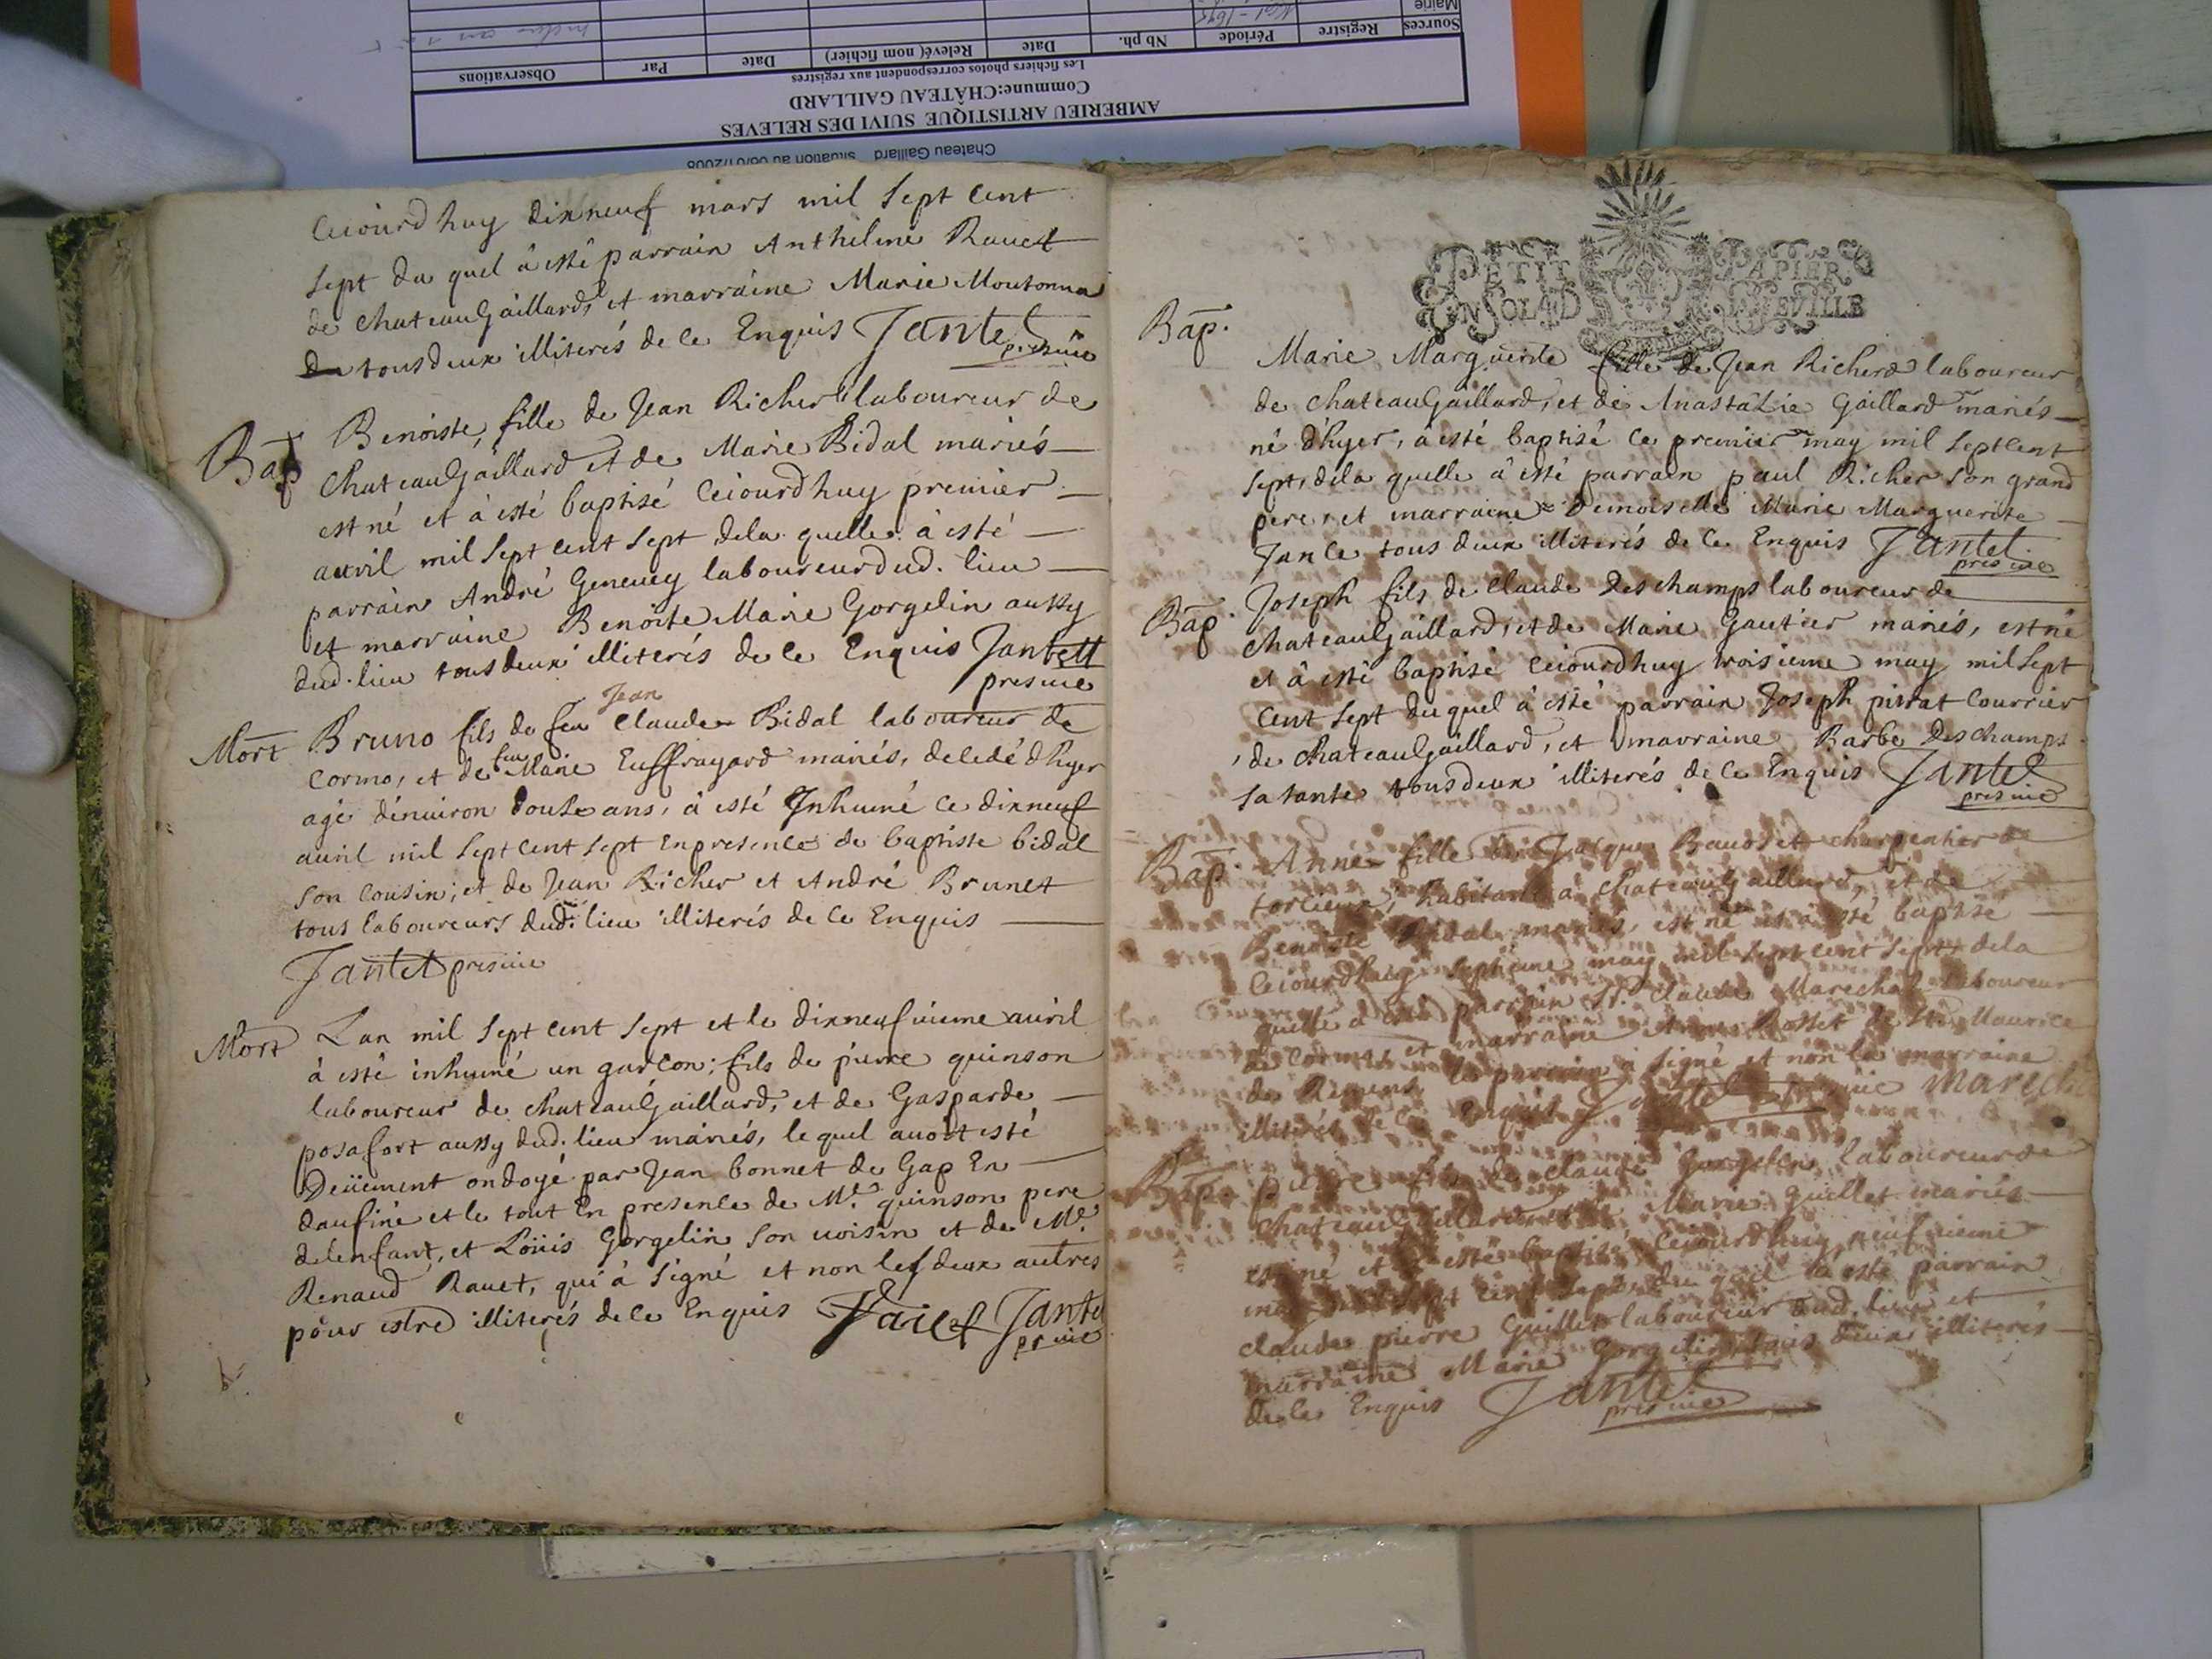 Chateau Gaillard situation au 06/01/2008
AMBERIEU ARTISTIQUE SUIVI DES RELEVES
Commune:CHÂTEAU GAILLARD
Les fichiers photos correspondent aux registres
Sources Registre Période Nb ph. Date Relevé( nom fichier) Date Par Observations
Mairie
Ceiourdhuy dixneuf mars mil sept cent
sept du quel à esté parrain Anthelme Rauet
de chateauGaillard, et marraine Marie Moutonna
tousdeux illiterés de ce Enquis Jantet
presvic
Bap
Benoiste, fille de Jean Richer laboureur de
ChateauGaillard et de Marie Bidal mariés
est né et à esté baptisé Ceiourdhuy premier
auvril mil sept cent sept dela quelle à esté
parrain André Geneuey laboureur dud. lieu
et marraine Benoite Marie Gorgelin aussy
dud. lieu tous deux illiterés de ce Enquis Jantett
presvic
Mort
Jean
Bruno fils de feu Claude Bidal laboureur de
feue
Cormo, et de Marie Euffrayard mariés, decedé dhyer
agé dénuiron douse ans, à esté Inhumé ce dixneuf
auril mil sept cent sept En presence de baptiste bidal
son Cousin; et de Jean Richer et André Brunet
tous laboureurs dud. lieu illiterés de ce Enquis
Jantet presvic
Mort
Lan mil sept cent sept et le dixneufuieme auril
à esté inhumé un garcon; fils de pierre quinson
laboureur de chateauGaillard, et de Gasparde
posafort aussy dud. lieu mariés, le quel auoit esté
Deüement ondoyé par Jean bonnet de Gap En
daufiné et le tout En presence de Me. quinson pere
delenfant, et Loüis Gorgelin son uoisin et de Me.
Renaud Rauet, qui à signé et non les deux autres
pour estre illiterés de ce Enquis Jantet
prvic
PETIT PAPIER
Bap.
Marie Marguerite fille de Jean Richerd laboureur
de chateauGaillard, et de Anastazie Gaillard mariés
né d'hyer, à esté baptisé ce premier may mil septcent
sept, dela quelle à esté parrain paul Richer son grand
pere, et marraine Demoiselle Marie Marguerite
Jance tous deux illiterés de ce Enquis Jantet
presvic
Bap.
Joseph fils de Claude Deschamps laboureur de
chateauGaillard, et de Marie Gautier mariés, est né
et à esté baptisé Ceiourdhuy troisieme may mil sept
Cent sept du quel à esté parrain Joseph pirrat Courrier
de chateauGaillard, et marraine Barbe Deschamps
sa tante tous deux illiterés de ce Enquis Jantet
presvic
Bap.
Anne fille de Jacque Baudet charpentier de
torcieux, habitant à chateauGaillard, et de
Benoite Bidal mariés, est né et à esté baptisé
Ceiourdhuy septieme may mil sept cent sept, dela
quelle à esté parrain Sr. Claude Marechal laboureur
de Cormo et marraine Rosset de St. Maurice
de Remens, le parrain à signé et non la marraine
illiterés de ce Enquis Jantet Marech
Bap.
pierre fils de claude Gorgelin laboureur de
chateauGaillard et de Marie Guillet mariés
est né et à esté baptisé Ceiourdhuy neufuieme
may mil sept cent sept, du quel à esté parrain
claude pierre Guillet laboureur dud. lieu et
marraine Marie Gorgelin tous deux illiterés
de ce Enquis Jantet
presvic